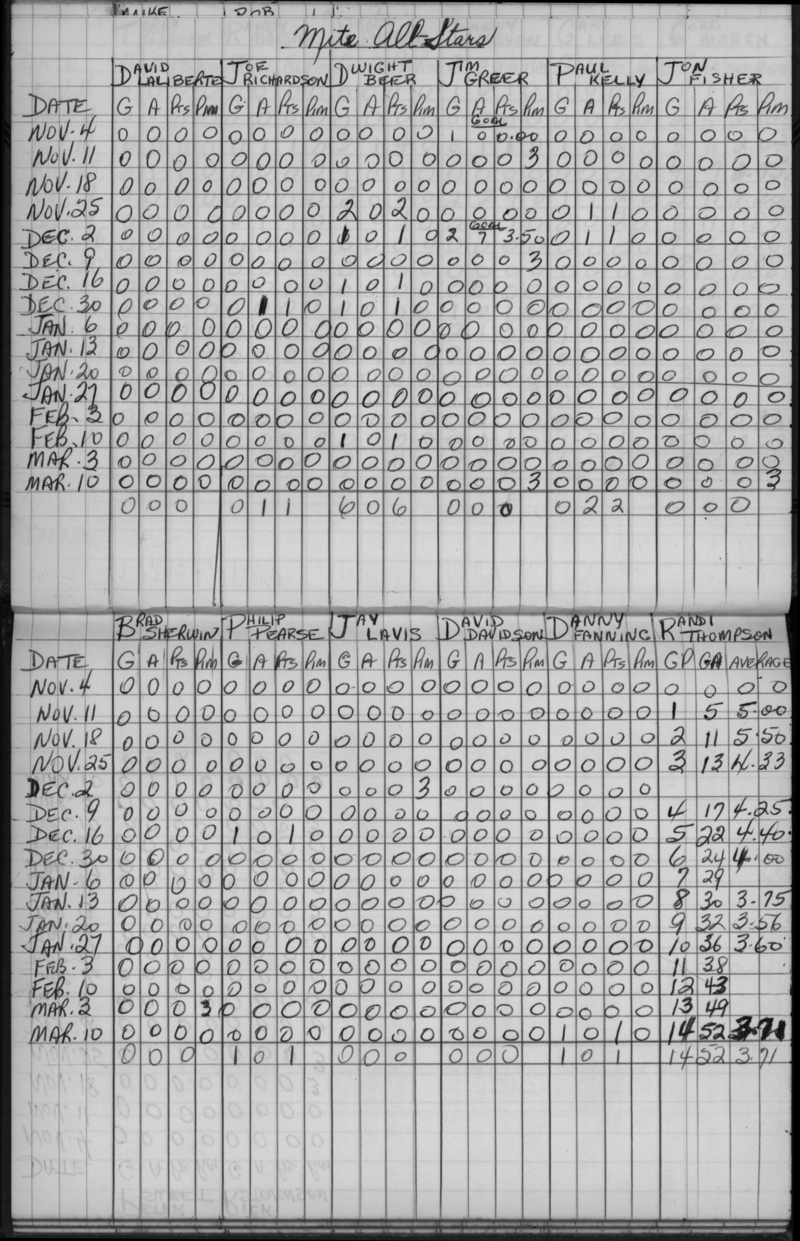 MIKE BOB
Mite All-Stars
DAVID LALIBERTE JOE RICHARDSON DWIGHT BEER JIM GREER PAUL KELLY JON FISHER
DATE G A Pts Pim G A Pts Pim G A Pts Pim G A Pts Pim G A Pts Pim G A Pts Pim
GOAL
NOV. 4 0 0 0 0 0 0 0 0 0 0 0 0 1 0 0.00 0 0 0 0 0 0 0 0
NOV. 11 0 0 0 0 0 0 0 0 0 0 0 0 0 0 0 3 0 0 0 0 0 0 0 0
NOV. 18 0 0 0 0 0 0 0 0 0 0 0 0 0 0 0 0 0 0 0 0 0 0 0 0
NOV. 25 0 0 0 0 0 0 0 0 2 0 2 0 0 0 0 0 0 1 1 0 0 0 0 0
GOAL
DEC. 2 0 0 0 0 0 0 0 0 1 0 1 0 2 7 3.50 0 1 1 0 0 0 0 0
DEC. 9 0 0 0 0 0 0 0 0 0 0 0 0 0 0 0 3 0 0 0 0 0 0 0 0
DEC. 16 0 0 0 0 0 0 0 0 1 0 1 0 0 0 0 0 0 0 0 0 0 0 0
DEC. 30 0 0 0 0 0 1 1 0 1 0 1 0 0 0 0 0 0 0 0 0 0 0 0 0
JAN. 6 0 0 0 0 0 0 0 0 0 0 0 0 0 0 0 0 0 0 0 0 0 0 0 0
JAN. 13 0 0 0 0 0 0 0 0 0 0 0 0 0 0 0 0 0 0 0 0 0 0 0 0
JAN. 20 0 0 0 0 0 0 0 0 0 0 0 0 0 0 0 0 0 0 0 0 0 0 0 0
JAN. 27 0 0 0 0 0 0 0 0 0 0 0 0 0 0 0 0 0 0 0 0 0 0 0 0
FEB. 3 0 0 0 0 0 0 0 0 0 0 0 0 0 0 0 0 0 0 0 0 0 0 0 0
FEB. 10 0 0 0 0 0 0 0 0 1 0 1 0 0 0 0 0 0 0 0 0 0 0 0 0
MAR. 3 0 0 0 0 0 0 0 0 0 0 0 0 0 0 0 0 0 0 0 0 0 0 0 0
MAR. 10 0 0 0 0 0 0 0 0 0 0 0 0 0 0 0 3 0 0 0 0 0 0 0 3
0 0 0 0 1 1 6 0 6 0 0 0 0 2 2 0 0 0
BRAD SHERWIN PHILIP PEARSE JAY LAVIS DAVID DAVIDSON DANNY FANNING RANDI THOMPSON
DATE G A Pts Pim G A Pts Pim G A Pts Pim G A Pts Pim G A Pts Pim GP GA AVERAGE
NOV. 4 0 0 0 0 0 0 0 0 0 0 0 0 0 0 0 0 0 0 0 0 0 0 0 0
NOV. 11 0 0 0 0 0 0 0 0 0 0 0 0 0 0 0 0 0 0 0 0 1 5 5.00
NOV. 18 0 0 0 0 0 0 0 0 0 0 0 0 0 0 0 0 0 0 0 0 2 11 5.50
NOV. 25 0 0 0 0 0 0 0 0 0 0 0 0 0 0 0 0 0 0 0 0 3 13 4.33
DEC. 2 0 0 0 0 0 0 0 0 0 0 0 3 0 0 0 0 0 0 0 0
DEC. 9 0 0 0 0 0 0 0 0 0 0 0 0 0 0 0 0 0 0 0 0 4 17 4.25
DEC. 16 0 0 0 0 1 0 1 0 0 0 0 0 0 0 0 0 0 0 0 0 5 22 4.40
DEC. 30 0 0 0 0 0 0 0 0 0 0 0 0 0 0 0 0 0 0 0 0 6 24 4.00
JAN. 6 0 0 0 0 0 0 0 0 0 0 0 0 0 0 0 0 0 0 0 0 7 29
JAN. 13 0 0 0 0 0 0 0 0 0 0 0 0 0 0 0 0 0 0 0 0 8 30 3.75
JAN. 20 0 0 0 0 0 0 0 0 0 0 0 0 0 0 0 0 0 0 0 0 9 32 3.56
JAN. 27 0 0 0 0 0 0 0 0 0 0 0 0 0 0 0 0 0 0 0 0 10 36 3.60
FEB. 3 0 0 0 0 0 0 0 0 0 0 0 0 0 0 0 0 0 0 0 0 11 38
FEB. 10 0 0 0 0 0 0 0 0 0 0 0 0 0 0 0 0 0 0 0 0 12 43
MAR. 3 0 0 0 3 0 0 0 0 0 0 0 0 0 0 0 0 0 0 0 0 13 49
MAR. 10 0 0 0 0 0 0 0 0 0 0 0 0 0 0 0 0 1 0 1 0 14 52 3.71
0 0 0 1 0 1 0 0 0 0 0 0 1 0 1 14 52 3.71